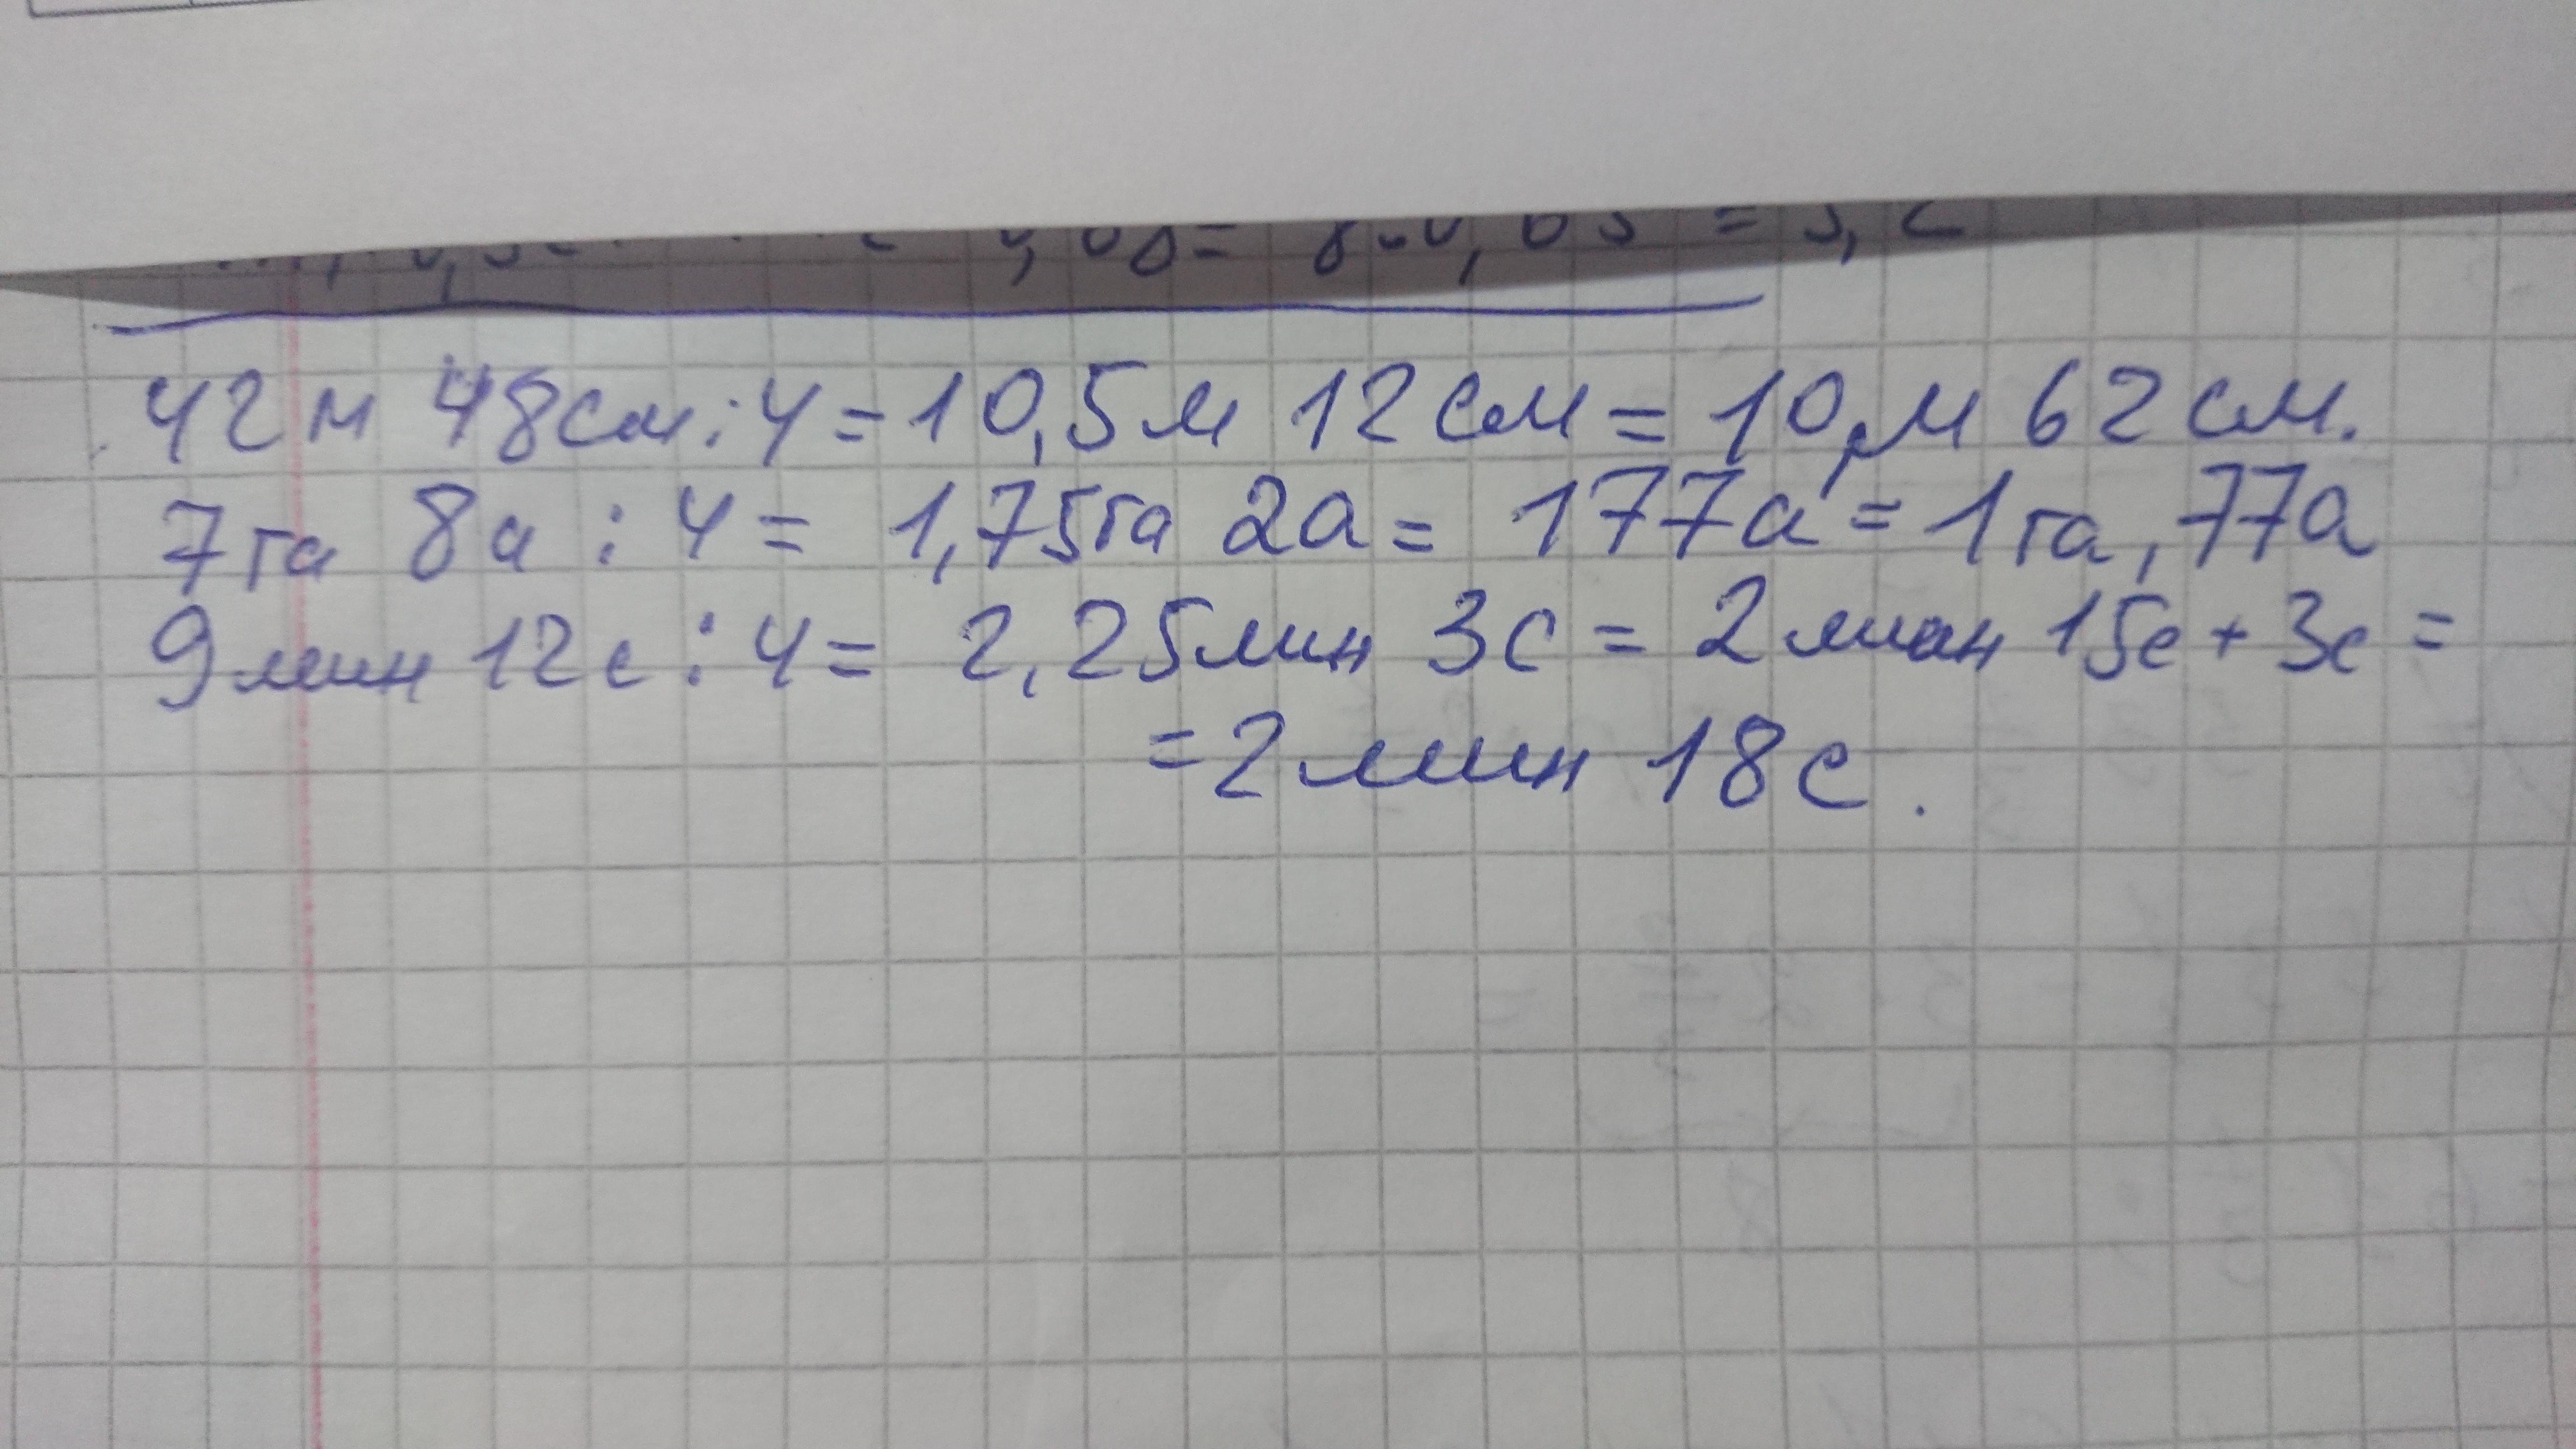 42м 48см : 4 = 10,5м 12см = 10,м 62см.
7га 8а : 4 = 1,75га 2а = 177а = 1га, 77а
9мин 12с : 4 = 2,25мин 3с = 2мин 15с + 3с =
= 2мин 18с.